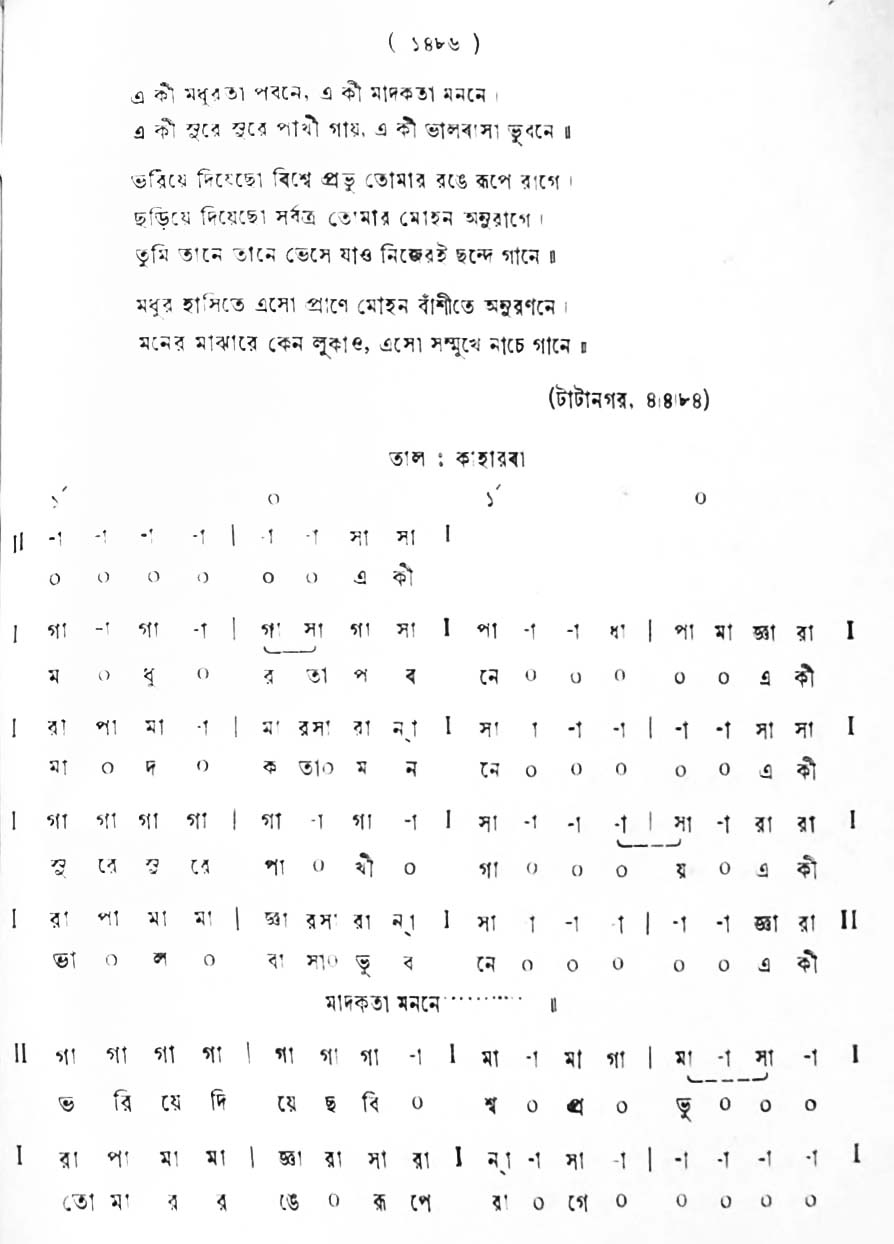 ( ১৪৮৬ )
এ কী মধুরতা পবনে, এ কী মাদকতা মননে ।
এ কী সুরে সুরে পাখী গায়, এ কী ভালবাসা ভুবনে ॥
ভরিয়ে দিয়েছো বিশ্বে প্রভু তোমার রঙে রূপে রাগে ।
ছড়িয়ে দিয়েছো সর্বত্র তোমার মোহন অনুরাগে ।
তুমি তানে তানে ভেসে যাও নিজেরই ছন্দে গানে ॥
মধুর হাসিতে এসো প্রাণে মোহন বাঁশীতে অনুরণনে ।
মনের মাঝারে কেন লুকাও, এসো সম্মুখে নাচে গানে ॥
(টাটানগর, ৪।৪।৮৪)
তাল : কাহারবা
১´ ০ ১´ ০
II -া -া -া -া | -া -া সা সা I
০ ০ ০ ০ ০ ০ এ কী
I গা -া গা -া | গা সা গা সা I পা -া -া ধা | পা মা জ্ঞা রা I
ম ০ ধু ০ র তা প ব নে ০ ০ ০ ০ ০ এ কী
I রা পা মা -া | মা রসা রা ন্‌া I সা া -া -া | -া -া সা সা I
মা ০ দ ০ ক তা০ ম ন নে ০ ০ ০ ০ ০ এ কী
I গা গা গা গা | গা -া গা -া I সা -া -া -া | সা -া রা রা I
সু রে সু রে পা ০ খী ০ গা ০ ০ ০ য় ০ এ কী
I রা পা মা মা | জ্ঞা রসা রা ন্‌া I সা া -া -া | -া -া জ্ঞা রা II
ভা ০ ল ০ বা সা০ ভু ব নে ০ ০ ০ ০ ০ এ কী
মাদকতা মননে ·········· ॥
II গা গা গা গা | গা গা গা -া I মা -া মা গা | মা -া সা -া I
ভ রি য়ে দি য়ে ছ বি ০ শ্ব ০ প্র ০ ভু ০ ০ ০
I রা পা মা মা | জ্ঞা রা সা রা I ন্‌া -া সা -া | -া -া -া -া I
তো মা র র ঙে ০ রূ পে রা ০ গে ০ ০ ০ ০ ০